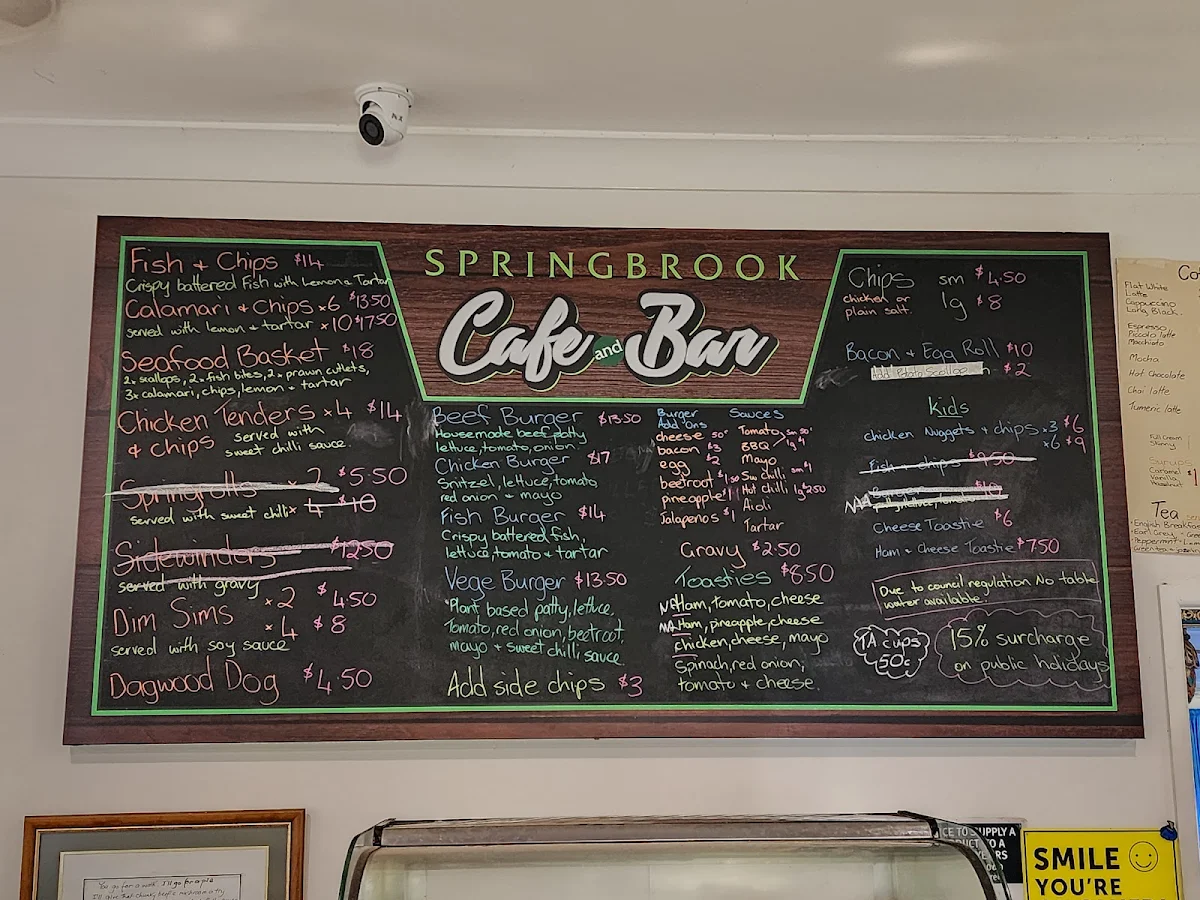 SPRINGBROOK
Cafe and Bar
Fish + Chips $14
Crispy battered Fish with Lemon & Tartar
Calamari + Chips x6 $13.50
served with lemon + tartar x10 $17.50
Seafood Basket $18
2x scallops, 2x fish bites, 2x prawn cutlets,
3x calamari, chips, lemon + tartar
Chicken Tenders x4 $14
& chips served with
sweet chilli sauce
Springrolls x2 $5.50
served with sweet chilli x4 $10
Sidewinders $12.50
served with gravy
Dim Sims x2 $4.50
x4 $8
served with soy sauce
Dagwood Dog $4.50
Beef Burger $13.50
Housemade beef patty
lettuce, tomato, onion.
Chicken Burger $17
Snitzel, lettuce, tomato
red onion + mayo
Fish Burger $14
Crispy battered fish,
lettuce, tomato + tartar
Vege Burger $13.50
Plant based patty, lettuce,
Tomato, red onion, beetroot,
mayo + sweet chilli sauce
Add side chips $3
Burger
Add Ons
cheese 50c
bacon $3
egg $2
beetroot $1.50
pineapple $1
Jalapenos $1
Sauces
Tomato sm 50c
BBQ lg $1
Mayo
Sw chilli sm $1
Hot chilli lg $2.50
Aioli
Tartar
Gravy $2.50
Toasties $8.50
Ham, tomato, cheese
NA Ham, pineapple, cheese
chicken, cheese, mayo
Spinach, red onion,
tomato + cheese.
Chips sm $4.50
chicken or lg $8
plain salt.
Bacon + Egg Roll $10
Add Potato Scallop $2
Kids
chicken Nuggets + chips x3 $6
x6 $9
Fish + chips $9.50
$10
NA
Cheese Toastie $6
Ham + Cheese Toastie $7.50
Due to council regulation No table
water available.
TA cups
50c
15% surcharge
on public holidays
Flat White
Latte
Cappuccino
Long Black
Espresso
Piccolo latte
Macchiato
Mocha
Hot Chocolate
Chai latte
Tumeric latte
Full Cream
Skinny
Syrups
Caramel $1
Vanilla
Hazelnut
Tea
English Breakfast
Earl Grey
Peppermint
SMILE
YOU'RE